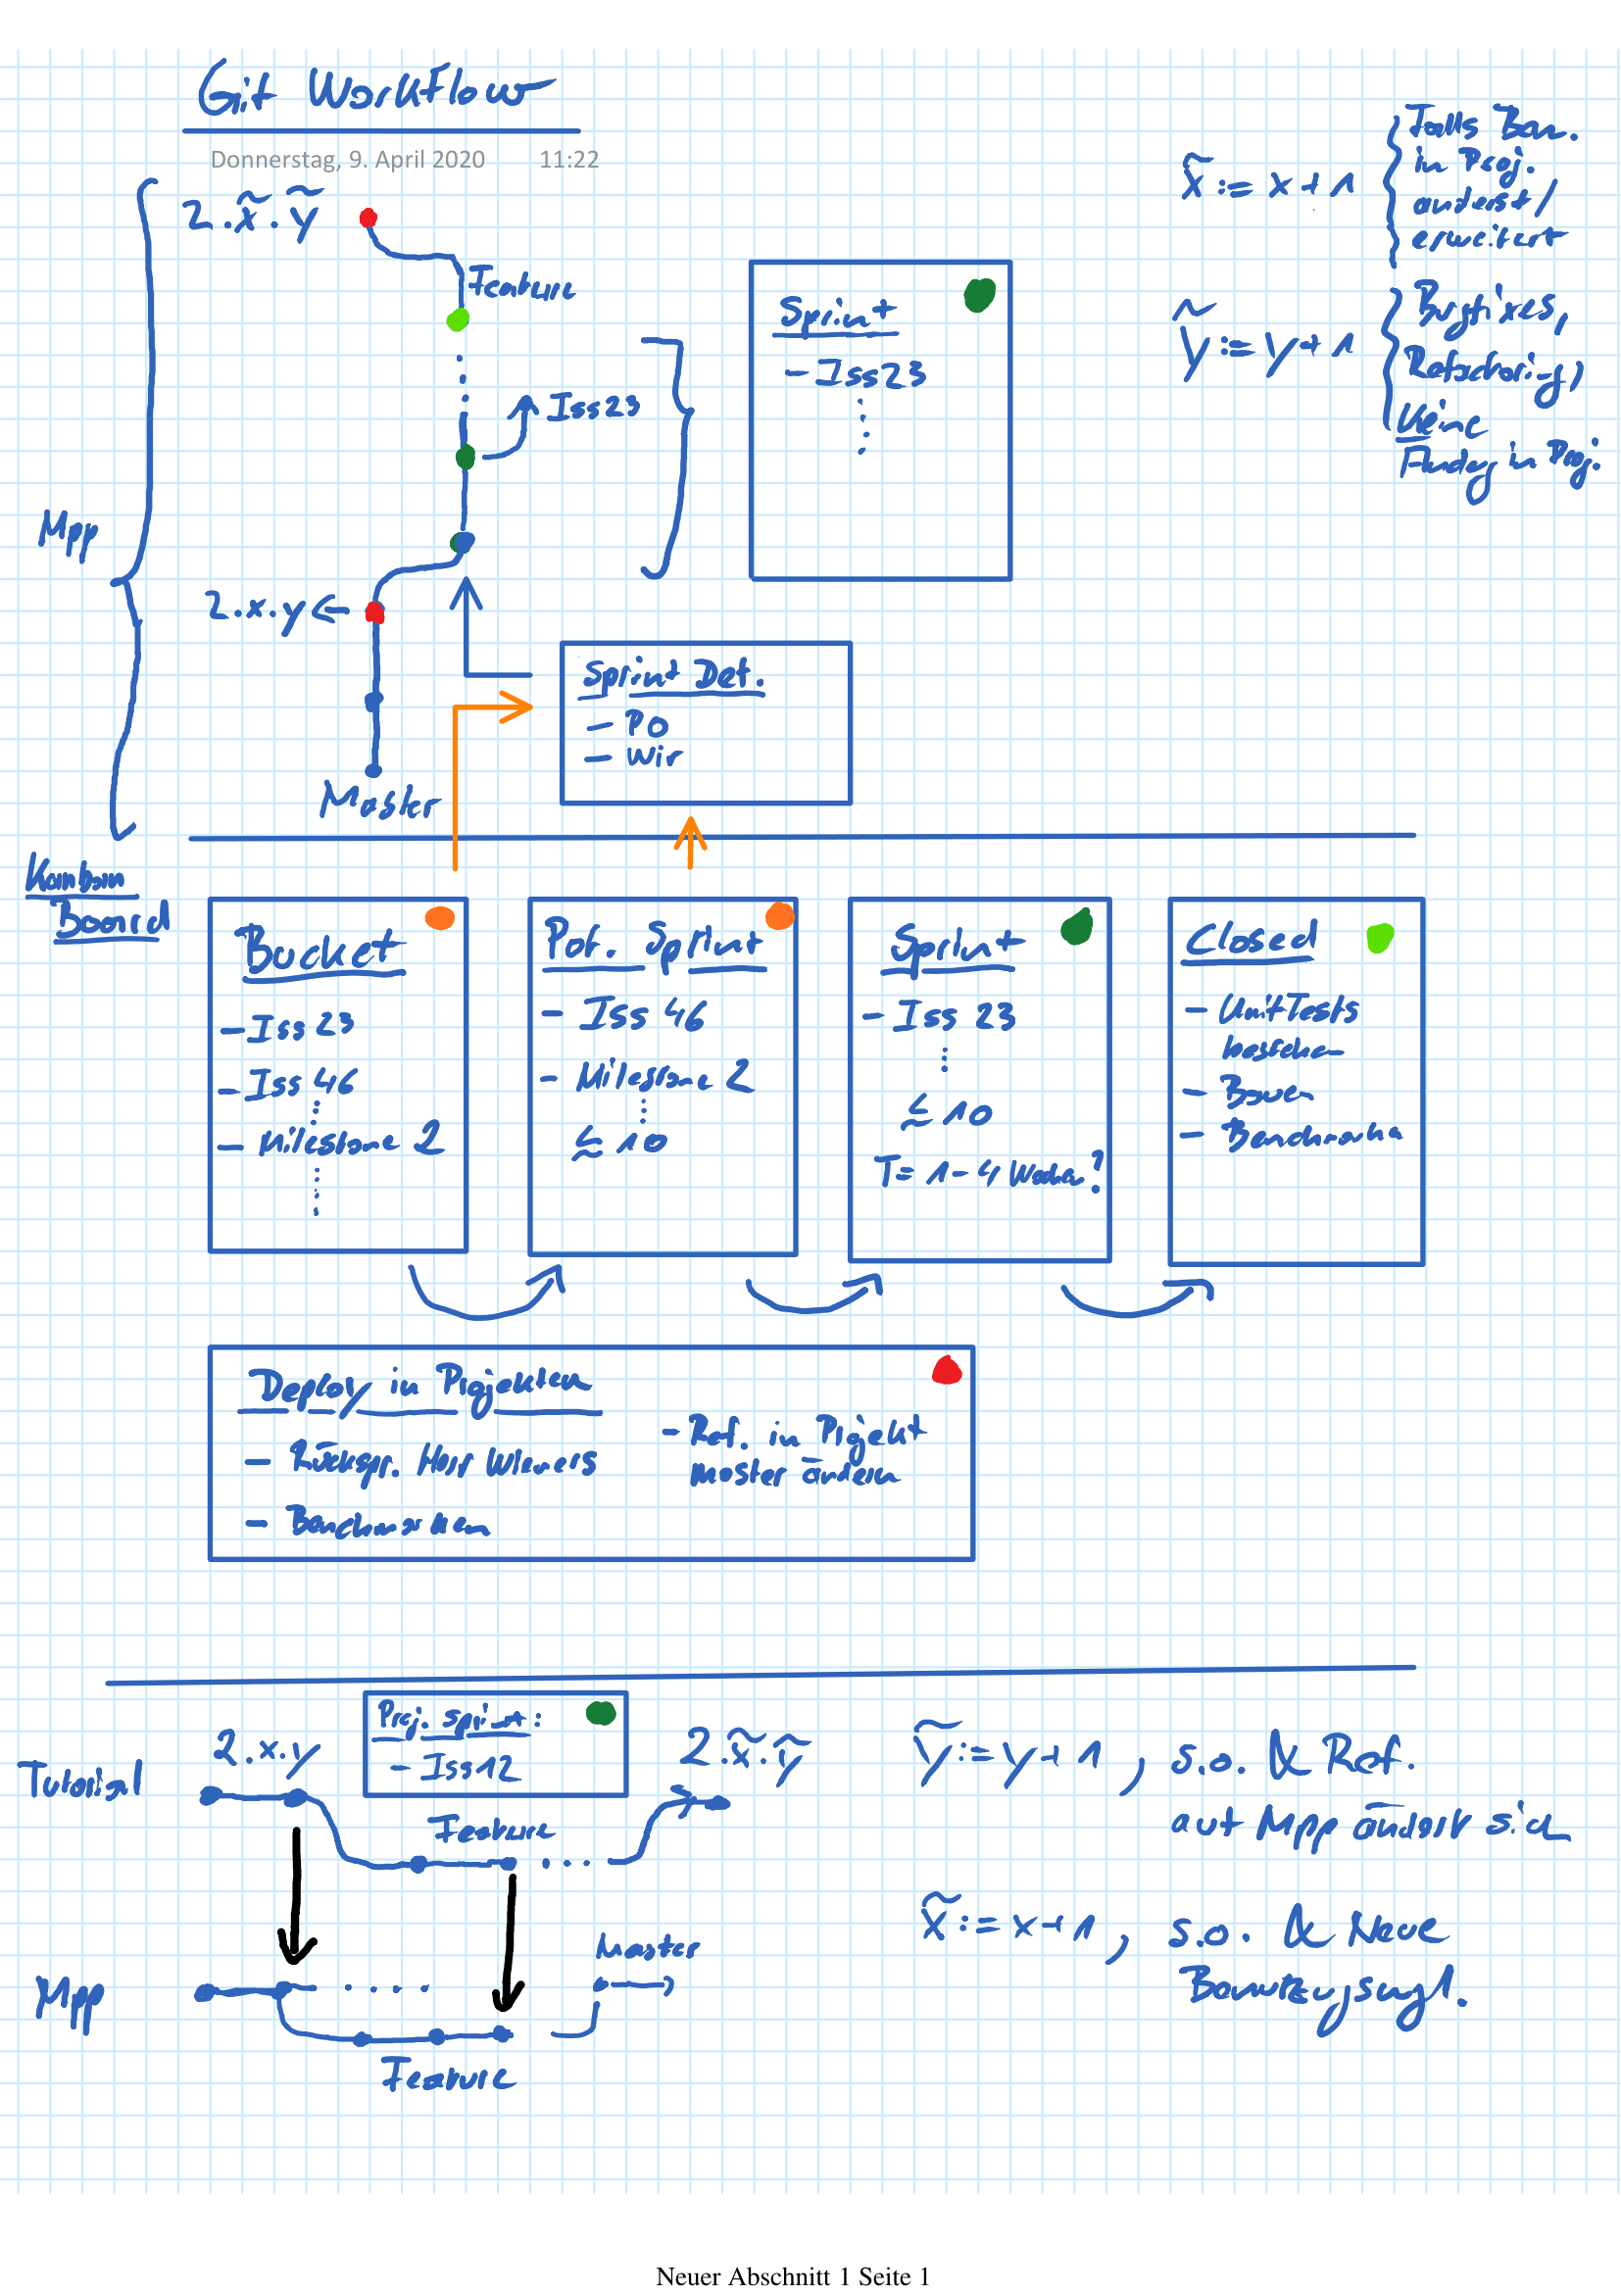 Git Workflow
Donnerstag, 9. April 2020 11:22
2.x̃.ỹ
Feature
Iss23
Mpp
2.x.y
Master
Sprint
- Iss23
x̃ := x+1
Falls Ben.
in Proj.
anderst/
erweitert
ỹ := y+1
Bugfixes,
Refactoring,
Keine
Änderg in Proj.
Sprint Det.
- PO
- Wir
Kanban
Board
Bucket
- Iss 23
- Iss 46
- Milestone 2
Pot. Sprint
- Iss 46
- Milestone 2
≲ 10
Sprint
- Iss 23
≲ 10
T= 1-4 Wochen?
Closed
- UnitTests
bestehen
- Bauen
- Benchmarks
Deploy in Projekten
- Rückspr. Herr Wieners
- Benchmarken
- Ref. in Projekt
master ändern
Tutorial
2.x.y
Proj. Sprint:
- Iss12
Feature
2.x̃.ỹ
ỹ := y+1, s.o. & Ref.
auf Mpp ändert sich
x̃ := x+1, s.o. & Neue
Benutzugsmgl.
Mpp
Master
Feature
Neuer Abschnitt 1 Seite 1